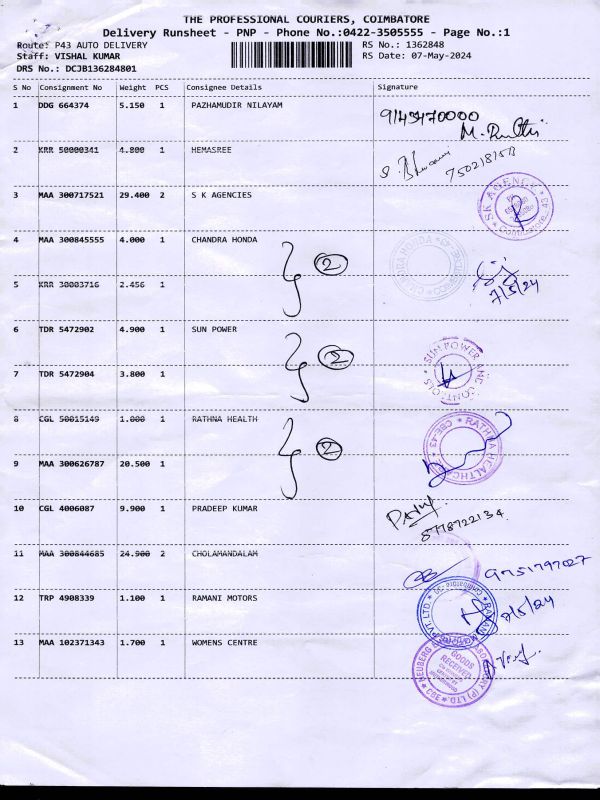 THE PROFESSIONAL COURIERS, COIMBATORE
Delivery Runsheet - PNP - Phone No.:0422-3505555 - Page No.:1
Route: P43 AUTO DELIVERY RS No.: 1362848
Staff: VISHAL KUMAR RS Date: 07-May-2024
DRS No.: DCJB136284801
S No Consignment No Weight PCS Consignee Details Signature
1 DDG 664374 5.150 1 PAZHAMUDIR NILAYAM
9145470000
2 KRR 50000341 4.800 1 HEMASREE
3 MAA 300717521 29.400 2 S K AGENCIES
SK AGENCY
4 MAA 300845555 4.000 1 CHANDRA HONDA
2
CHANDRA HONDA
5 KRR 30003716 2.456 1
7/5/24
6 TDR 5472902 4.900 1 SUN POWER
2
SUN POWER AND CONTROLS
7 TDR 5472904 3.800 1
8 CGL 50015149 1.000 1 RATHNA HEALTH
2
RATHNA HEALTHCARE
9 MAA 300626787 20.500 1
10 CGL 4006087 9.900 1 PRADEEP KUMAR
8778722134
11 MAA 300844685 24.900 2 CHOLAMANDALAM
9751797027
12 TRP 4908339 1.100 1 RAMANI MOTORS
RAMANI PVT. LTD
7/5/24
13 MAA 102371343 1.700 1 WOMENS CENTRE
NEUBERG (P) LTD. CBE
GOODS
RECEIVED